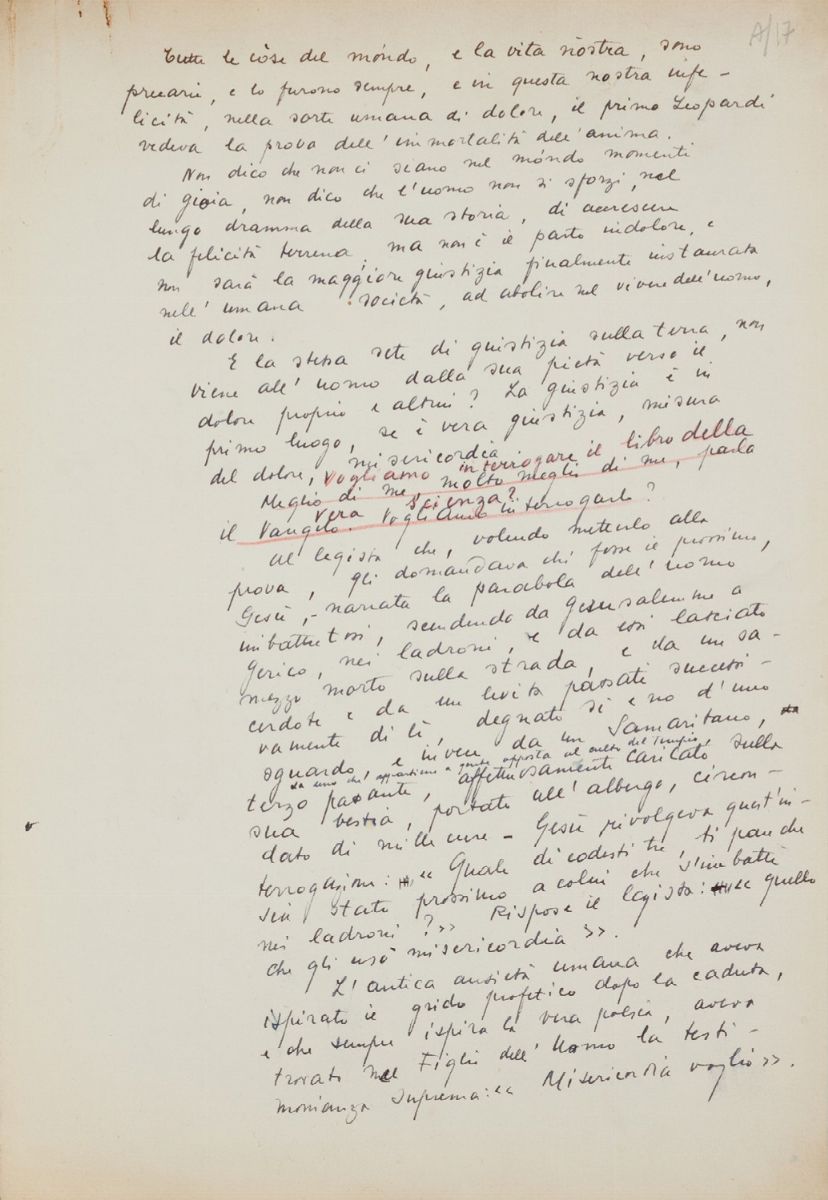 A/17
Tutte le cose del móndo, e la vita nostra, sono
precarie, e lo furono sempre, e in questa nostra infe-
licità, nella sorte umana di dolore, il primo Leopardi
vedeva la prova dell'immortalità dell'anima.
Non dico che non ci siano nel móndo momenti
di gioia, non dico che l'uomo non si sforzi, nel
lungo dramma della sua storia, di accrescere
la felicità terrena, ma non è il parto indolore, e
non sarà la maggiore giustizia finalmente instaurata
nell'umana società, ad abolire nel vivere dell'uomo,
il dolore.
E la stessa sete di giustizia sulla terra, non
viene all'uomo dalla sua pietà verso il
dolore proprio e altrui? La giustizia è in
primo luogo, se è vera giustizia, misura
del dolore, misericordia
Vogliamo interrogare il libro della
Meglio di me, molto meglio di me, parla
vera scienza?
il Vangelo. Vogliamo interrogarlo?
Al legista che, volendo metterlo alla
prova, gli domandava chi fosse il prossimo,
Gesù, - narrata la parabola dell'uomo
imbattutosi, scendendo da Gerusalemme a
Gerico, nei ladroni, e da essi lasciato
mezzo morto sulla strada, e da un sa-
cerdote e da un levita passati successi-
vamente di lì, degnato sì e no d'uno
sguardo, e invece da un Samaritano,
da uno che appartiene a gente opposta al culto del Tempio,
terzo passante, affettuosamente caricato sulla
sua bestia, portato all'albergo, circon-
dato di mille cure - Gesù rivolgeva quest'in-
terrogazione: << Quale di codesti tre, ti pare che
sia stato prossimo a colui che s'imbatté
nei ladroni?>> Rispose il legista: << quello
che gli usò misericordia >>.
L'antica ansietà umana che aveva
ispirato il grido profetico dopo la caduta,
e che sempre ispira la vera poesia, aveva
trovato nel Figlio dell'Uomo la testi-
monianza suprema: << Misericordia voglio>>.